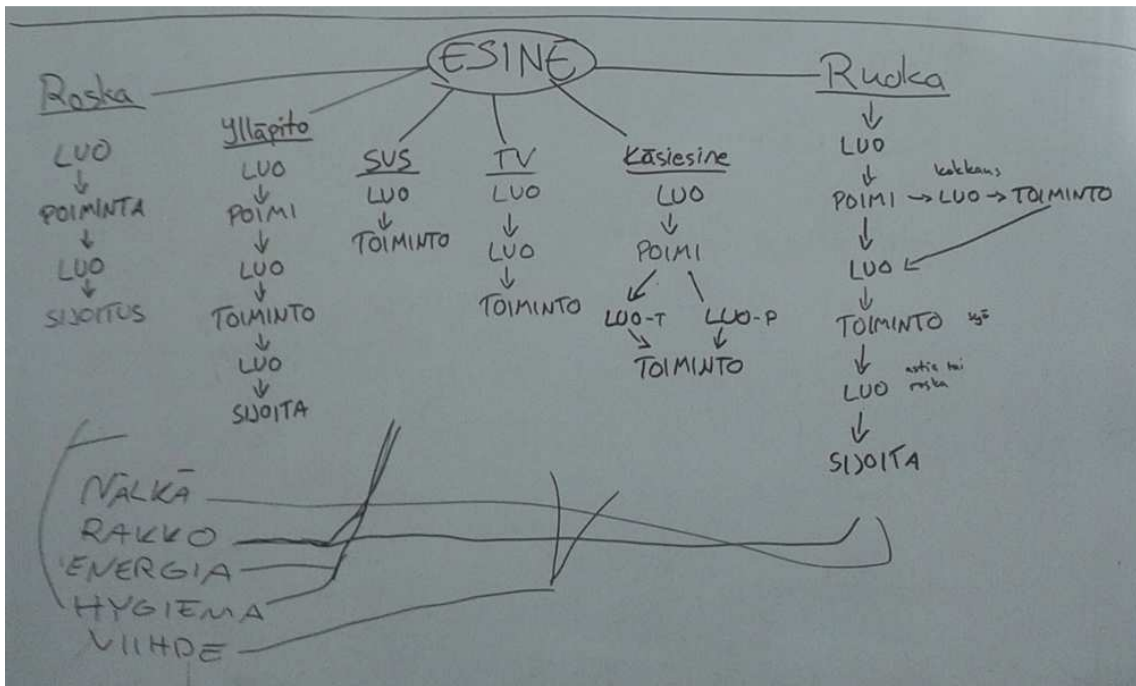 ESINE
Roska
LUO
POIMINTA
LUO
SIJOITUS
Ylläpito
LUO
POIMI
LUO
TOIMINTO
LUO
SIJOITA
SVS
LUO
TOIMINTO
TV
LUO
LUO
TOIMINTO
Käsiesine
LUO
POIMI
LUO-T LUO-P
TOIMINTO
Ruoka
LUO
kokkaus
POIMI → LUO → TOIMINTO
LUO
TOIMINTO syö
LUO astia tai roska
SIJOITA
NÄLKÄ
RAKKO
ENERGIA
HYGIENIA
VIIHDE